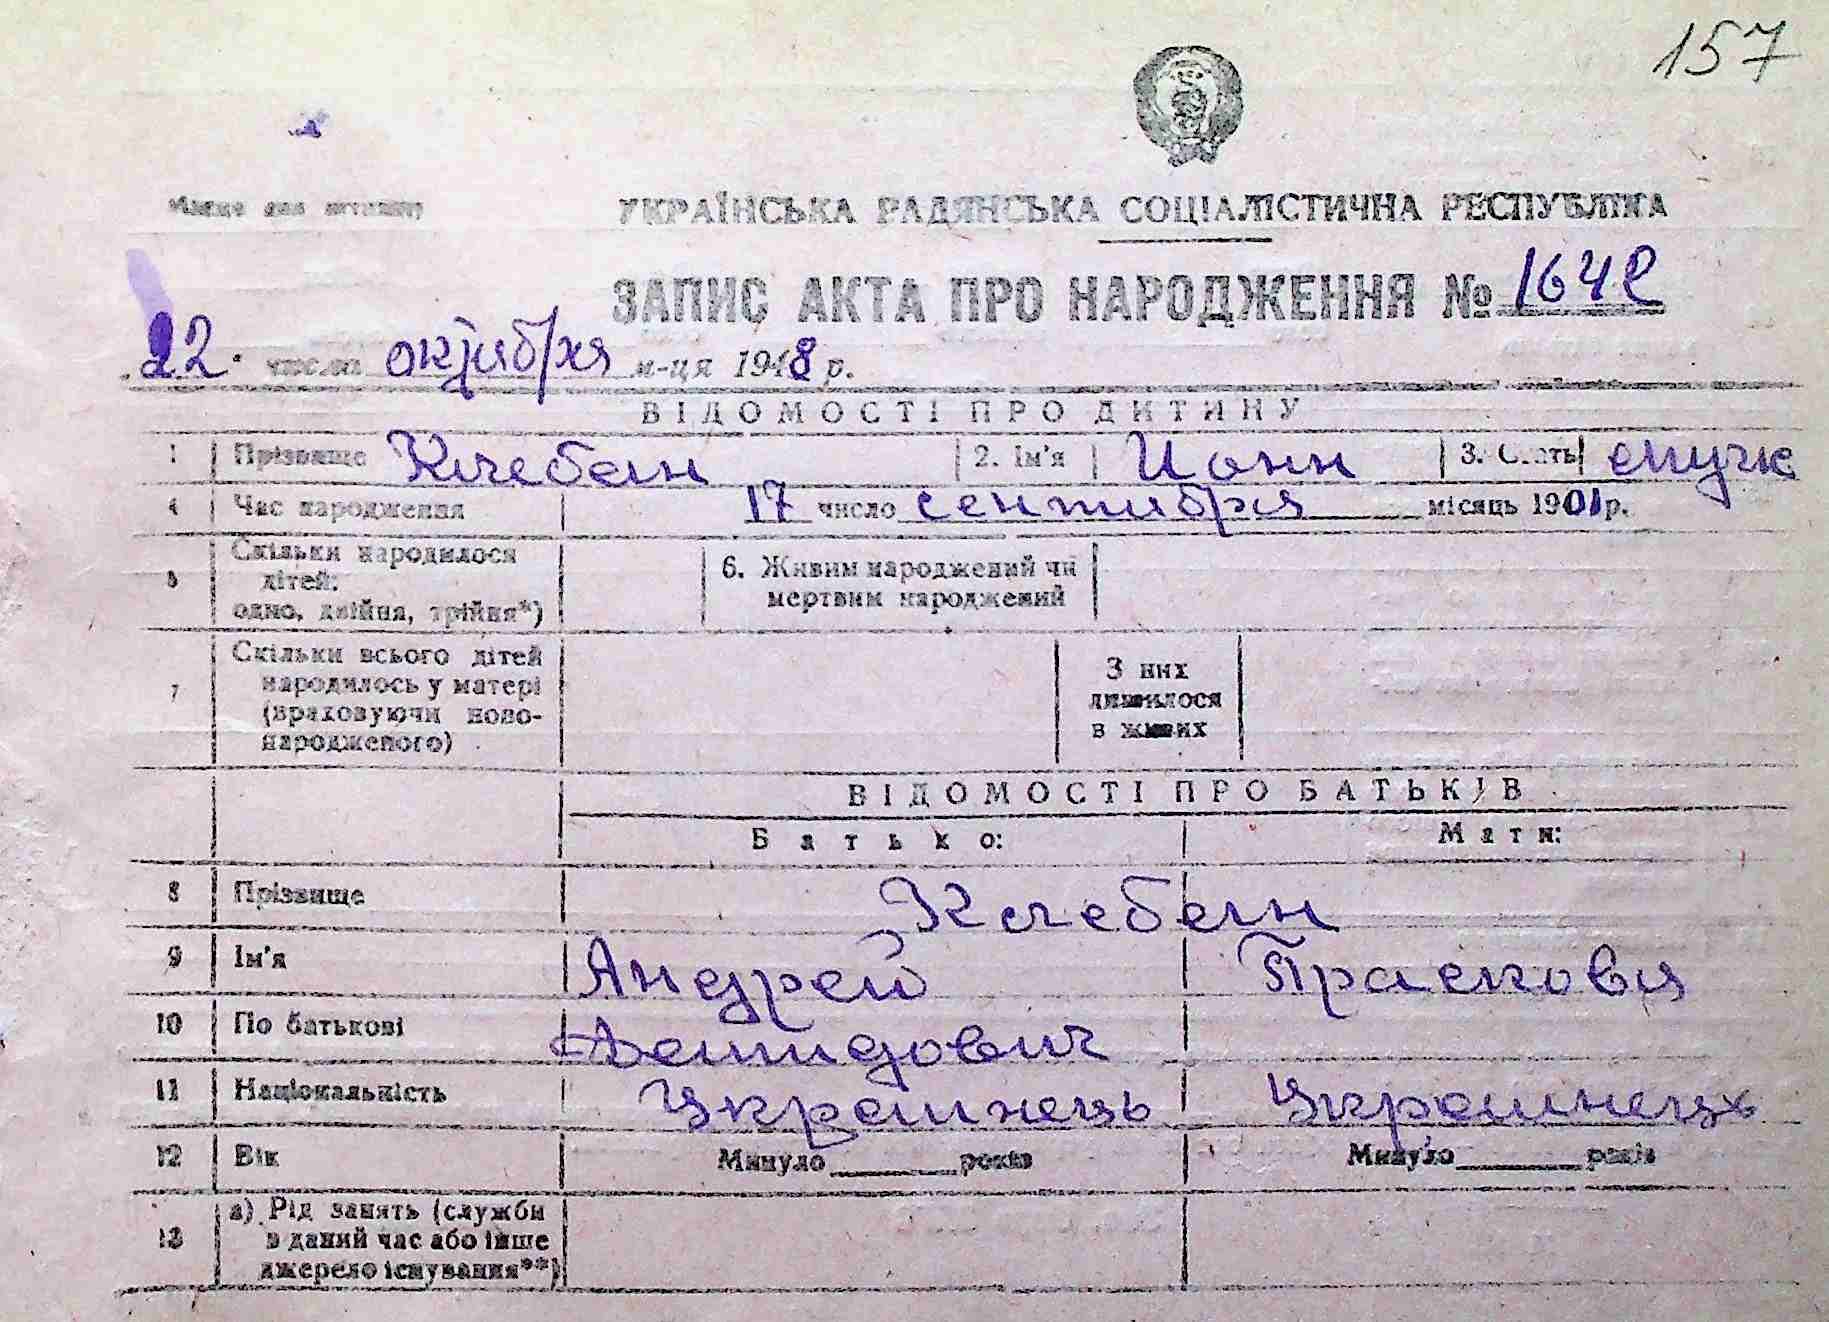 157
Місце для штампу
УКРАЇНСЬКА РАДЯНСЬКА СОЦІАЛІСТИЧНА РЕСПУБЛІКА
ЗАПИС АКТА ПРО НАРОДЖЕННЯ №
22 числа октября м-ця 1948 р.
ВІДОМОСТІ ПРО ДИТИНУ
1 Прізвище 2. Ім'я Иоан 3. Стать муж
4 Час народження 17 число сентября місяць 1901 р.
5 Скільки народилося дітей: одно, двійня, трійня*) 6. Живим народжений чи мертвим народжений
7 Скільки всього дітей народилось у матері (враховуючи новонародженого) З них лишилося в живих
ВІДОМОСТІ ПРО БАТЬКІВ
Батько: Мати:
8 Прізвище
9 Ім'я Андрей Прасковя
10 По батькові Демидович
11 Національність Украинець Украинець
12 Вік Минуло ______ років Минуло ______ років
13 а) Рід занять (служби в даний час або інше джерело існування**)